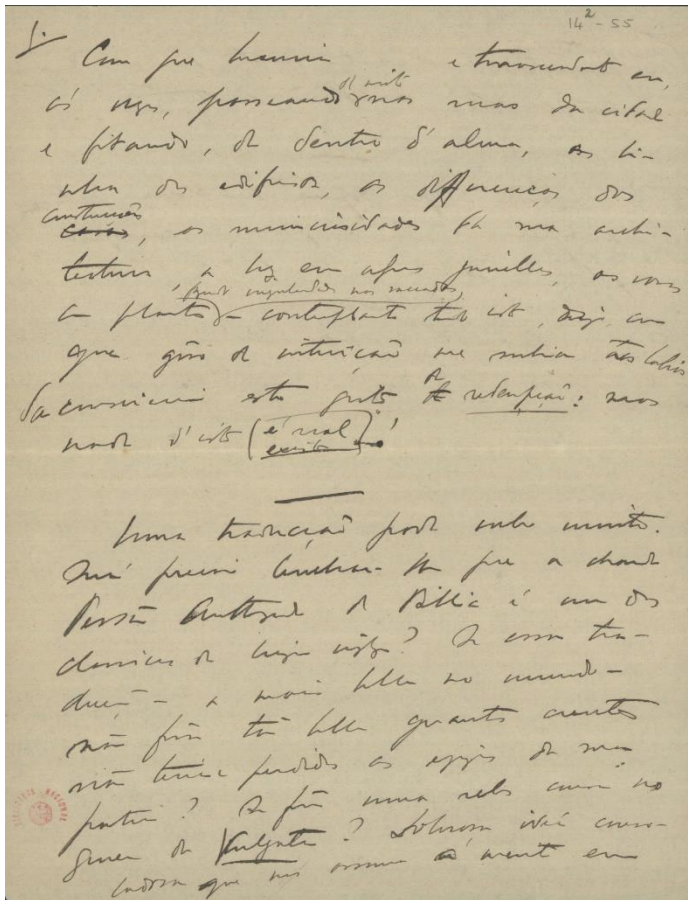 14² - 55
Com que luxuria e transcendente eu,
ás vezes, passeando de noite nas ruas da cidade
e fitando, de dentro d'alma, as li-
nhas dos edificios, as differenças das
construcções, as minuciosidades da sua archi-
tectura, a luz em algumas janellas, os vasos
com plantas contemplando tudo isto, com
que gozo de intuição me subia aos labios
da consciencia este grito de redempção: mas
nada d'isto é real!
Uma traducção pode valer muito.
Será preciso lembrar que a chamada
Versão da Biblia é um dos
classicos da lingua ingleza? Se essa tra-
ducção - a mais bella no mundo -
não fôra tão bella quantos crentes
não teria perdido as egrejas da sua
patria? Se fôr uma no
genero da Vulgata?
que nos assoma á mente em